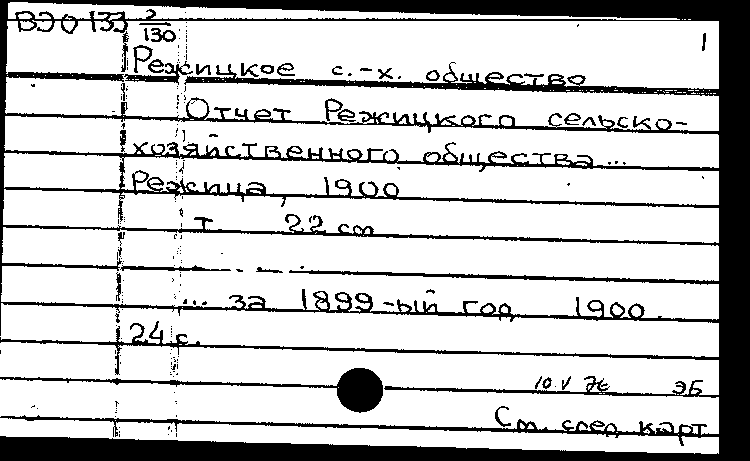 ВЭО 133 2/130
1
Режицкое с.-х. общество
Отчет Режицкого сельско-
хозяйственного общества...
Режица, 1900
т 22 см
... за 1899-ый год 1900.
24 с.
10 V ЭБ
См. след. карт